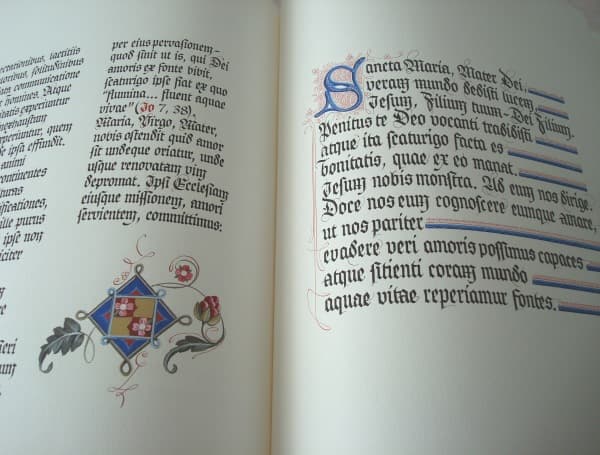 laetitiis
solitudinibus
communicatione
homines. Atque
experiuntur
quem
ipse effundit.
animi
purus
ipse non
per eius pervasionem—
quod sinit ut is, qui Dei
amoris ex fonte bibit,
scaturigo ipse fiat ex quo
“flumina... fluent aquae
vivae” (Io 7, 38).
Maria, Virgo, Mater,
nobis ostendit quid amor
sit undeque oriatur, unde
usque renovatam vim
depromat. Ipsi Ecclesiam
eiusque missionem, amori
servientem, committimus:
Sancta Maria, Mater Dei,
veram mundo dedisti lucem,
Iesum, Filium tuum – Dei Filium.
Penitus te Deo vocanti tradidisti
atque ita scaturigo facta es
bonitatis, quae ex eo manat.
Iesum nobis monstra. Ad eum nos dirige.
Doce nos eum cognoscere eumque amare,
ut nos pariter
evadere veri amoris possimus capaces
atque sitienti coram mundo
aquae vitae reperiamur fontes.